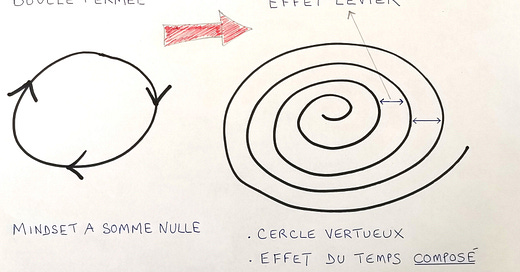 BOUCLE FERMÉE
EFFET LEVIER
MINDSET A SOMME NULLE
. CERCLE VERTUEUX
. EFFET DU TEMPS COMPOSÉ